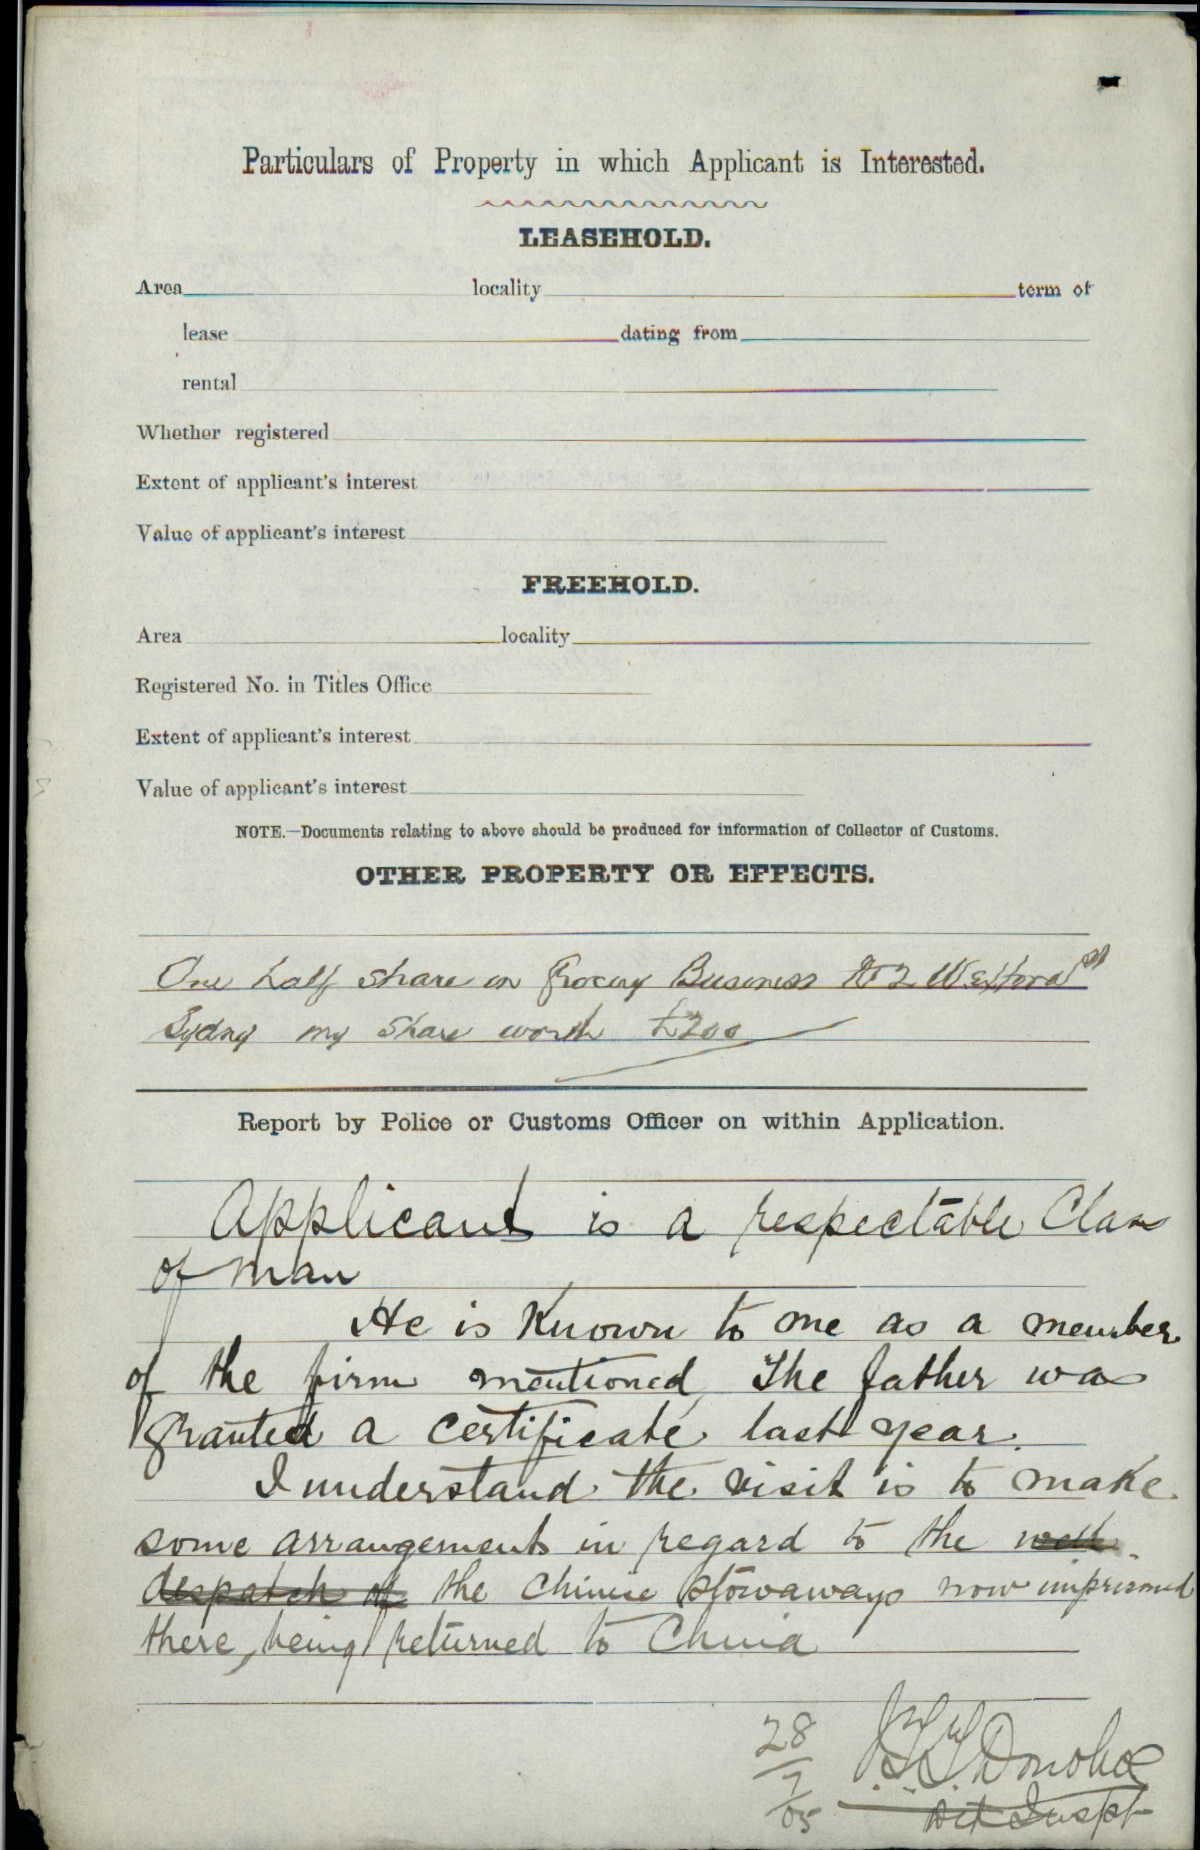 Particulars of Property in which Applicant is Interested.
LEASEHOLD.
Area locality term of
lease dating from
rental
Whether registered
Extent of applicant's interest
Value of applicant's interest
FREEHOLD.
Area locality
Registered No. in Titles Office
Extent of applicant's interest
Value of applicant's interest
NOTE.—Documents relating to above should be produced for information of Collector of Customs.
OTHER PROPERTY OR EFFECTS.
One half share in Grocery Business No 2 Wexford St
Sydny my share worth £200
Report by Police or Customs Officer on within Application.
Applicant is a respectable Class
of man
He is Known to me as a member
of the firm mentioned, The father was
granted a certificate last year.
I understand the visit is to make
some arrangements in regard to the well
despatch of the Chinese stowaways now imprisoned
there, being returned to China
28
7
05
Donohoe
Det Inspr